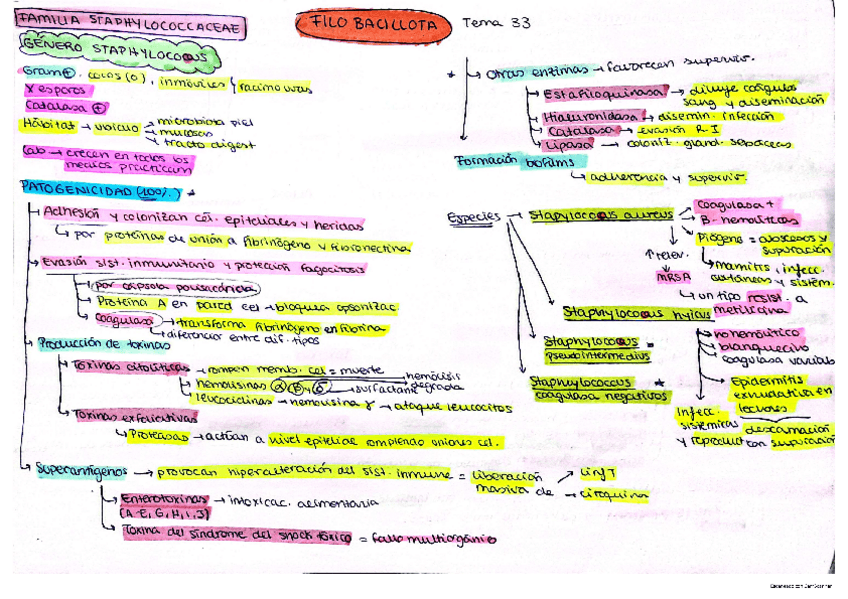 FAMILIA STAPHYLOCOCCACEAE
FILO BACILLOTA
Tema 33
GÉNERO STAPHYLOCOCUS
Gram⊕. cocos (o), inmóviles racimo uvas
X esporos
Catalasa ⊕
Hábitat → ubicuo
microbiota piel
mucosas
tracto digest
Lab → crecen en todos los
medios practicam
PATOGENICIDAD (100%) *
Adhesión y colonizan cél. epiteliales y heridas
por proteínas de unión a fibrinógeno y fibronectina
Evasión sist. inmunitario y protección fagocitosis
por cápsula polisacárida
Proteína A en pared cel → bloquea opsonizac
Coagulasa → transforma fibrinógeno en fibrina
diferenciar entre dif. tipos
Producción de toxinas
Toxinas citolíticas → rompen memb. cel = muerte
hemolisinas α β y δ → surfactante
hemólisis
degrada
leucocidinas → hemolisina γ → ataque leucocitos
Toxinas exfoliativas
Proteasas → actúan a nivel epitelial rompiendo uniones cel.
Superantígenos → provocan hiperalteración del sist. inmune = liberación
masiva de
linf T
citoquina
Enterotoxinas → intoxicac. alimentaria
(A-E, G, H, I, J)
Toxina del síndrome del shock tóxico = fallo multiorgánico
* → Otras enzimas → favorecen superviv.
Estafiloquinasa → diluye coágulos
sang y diseminación
Hialuronidasa → disemin. infección
Catalasa → evasión R.I
Lipasa → coloniz. gland. sebáceas
Formación biofilms
adherencia y superviv.
Especies → Stapylococcus aureus
Coagulasa +
β-hemolíticos
Piógeno = abscesos y
supuración
↑ relev.
MRSA
Mamitis, infecc.
cutáneas y sistém.
un tipo resist. a
meticilina
Staphylococcus hyicus
Staphylococcus
pseudointermedius
Staphylococcus *
coagulasa negativos
no hemolítico
blanquecino
coagulasa variable
Epidermitis
exhudativa en
lechones
descamación
con supuración
Infecc.
sistémicas
y reproduct